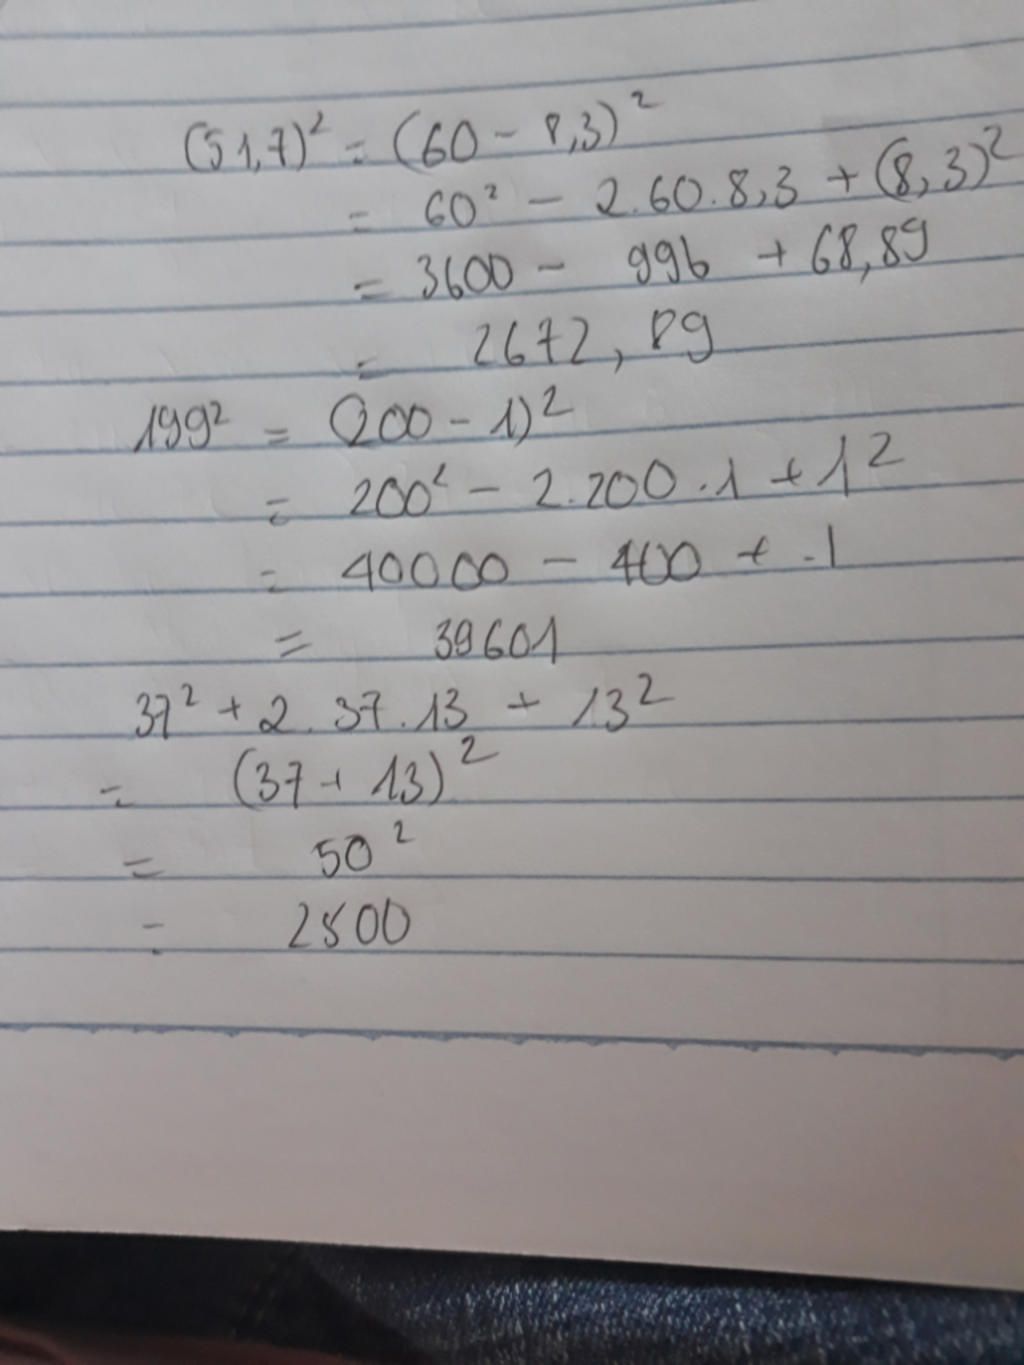 (51,7)² = (60 - 8,3)²
= 60² - 2.60.8,3 + (8,3)²
= 3600 - 996 + 68,89
= 2672,89
199² = (200 - 1)²
= 200² - 2.200.1 + 1²
= 40000 - 400 + 1
= 39601
37² + 2.37.13 + 13²
= (37 + 13)²
= 50²
= 2500